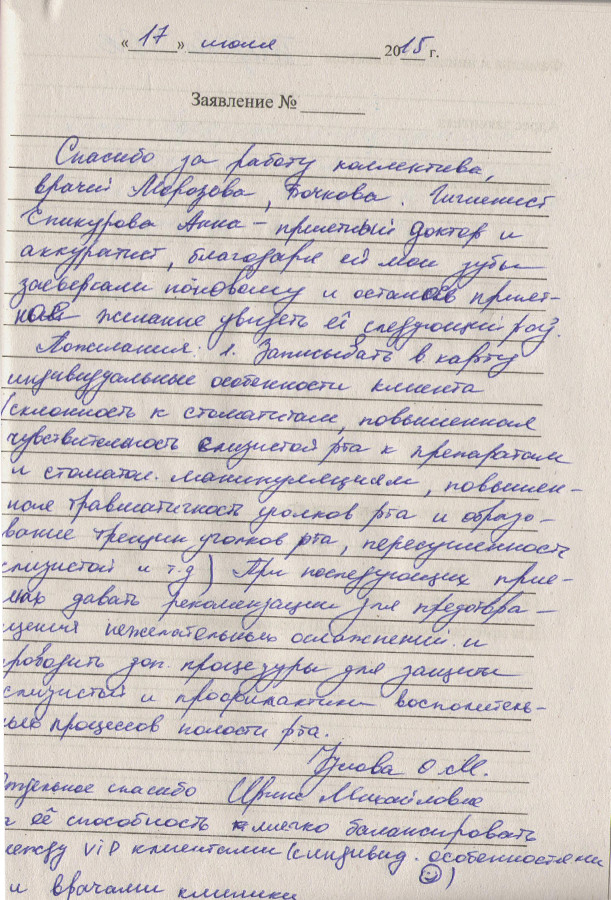 « 17 » июля 2015 г.
Заявление № ______
Спасибо за работу коллектива,
врачей Морозова, Бочкова. Гигиенист
Епикурова Анна – приятный доктор и
аккуратист, благодаря ей мои зубы
засверкали поновому и остало прият-
ное желание увидеть её следующий раз.
Пожелания: 1. Записывать в карту
индивидуальные особенности клиента
(склонность к стоматитам, повышенная
чувствительность слизистой рта к препаратам
и стоматол. манипуляциям, повышен-
ная травматичность уголков рта и образо-
вание трещин уголков рта, пересушенность
слизистой и т.д) При последующих прие-
мах давать рекомендации для предотвра-
щения нежелательных осложнений и
проводить доп. процедуры для защиты
слизистой и профилактики воспалитель-
ных процессов полости рта.
О.М.
Отдельное спасибо Ирине Михайловне
её способность мягко балансировать
между VIP клиентами (с индивид. особенностями
☺)
и врачами клиники